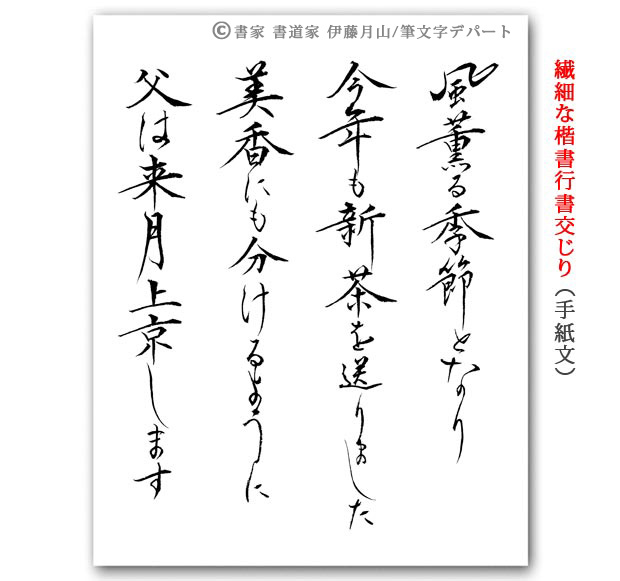 ©書家 書道家 伊藤月山/筆文字デパート
繊細な楷書行書交じり（手紙文）
風薫る季節となり
今年も新茶を送りました
美香にも分けるように
父は来月上京します